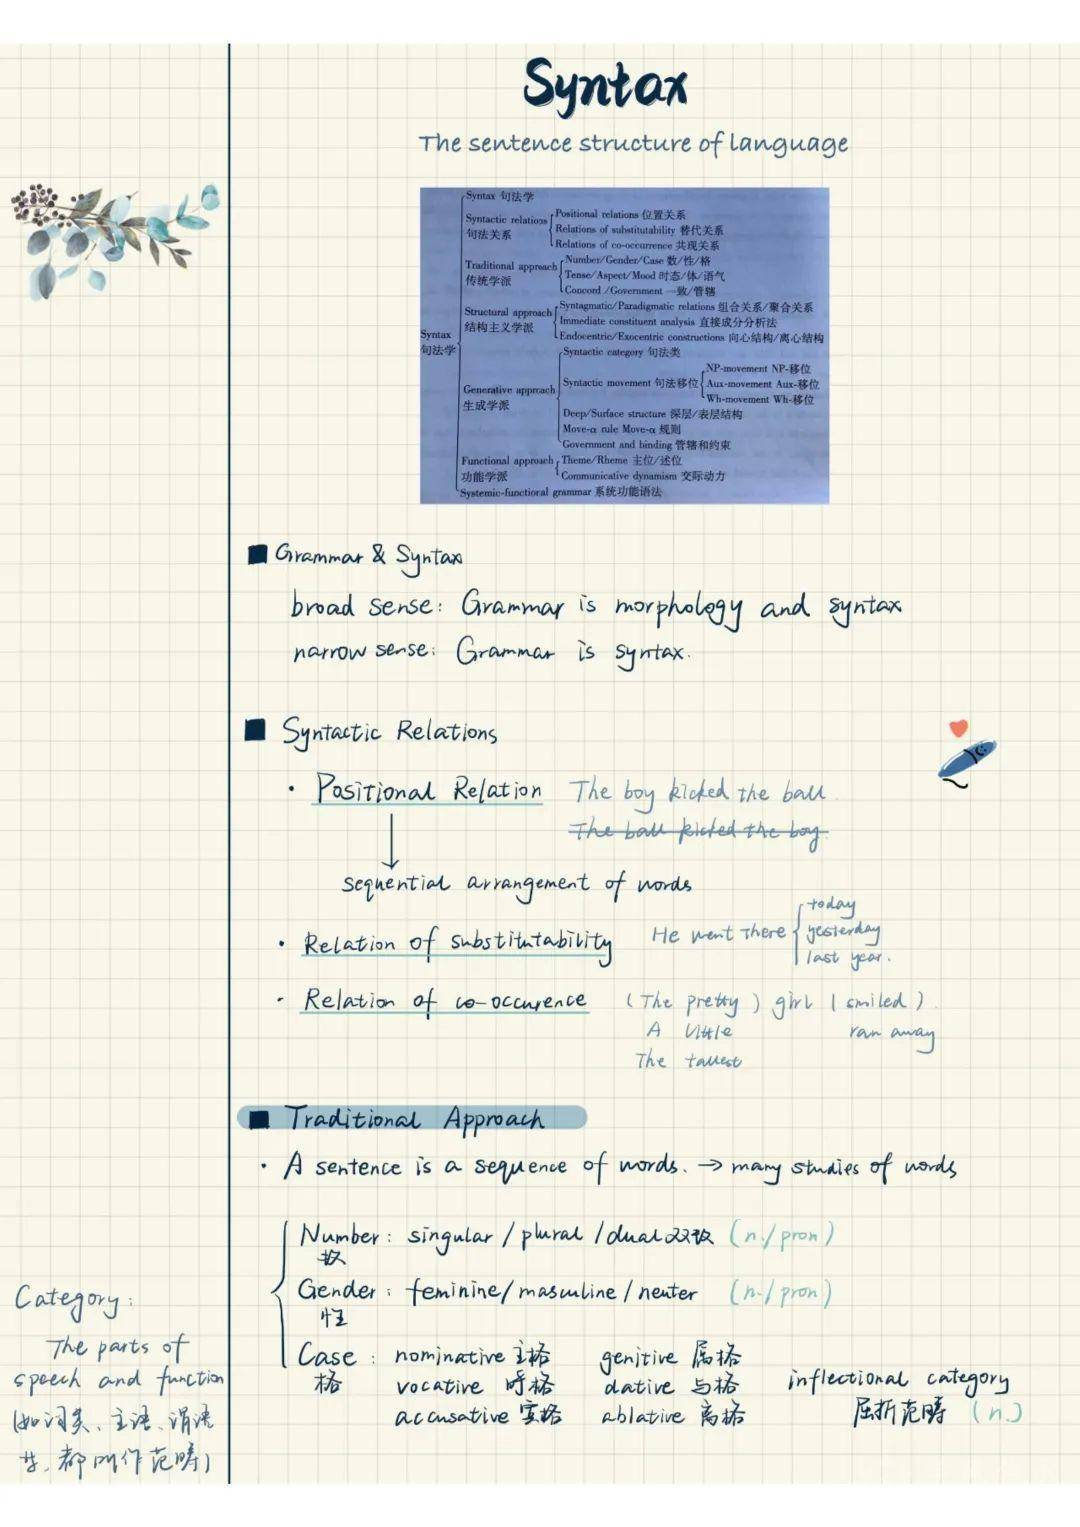 Syntax
The sentence structure of language
Syntax 句法学
Syntax 句法学
Syntactic relations 句法关系
Positional relations 位置关系
Relations of substitutability 替代关系
Relations of co-occurrence 共现关系
Traditional approach 传统学派
Number/Gender/Case 数/性/格
Tense/Aspect/Mood 时态/体/语气
Concord /Government 一致/管辖
Structural approach 结构主义学派
Syntagmatic/Paradigmatic relations 组合关系/聚合关系
Immediate constituent analysis 直接成分分析法
Endocentric/Exocentric constructions 向心结构/离心结构
Generative approach 生成学派
Syntactic category 句法类
Syntactic movement 句法移位
NP-movement NP-移位
Aux-movement Aux-移位
Wh-movement Wh-移位
Deep/Surface structure 深层/表层结构
Move-α rule Move-α 规则
Government and binding 管辖和约束
Functional approach 功能学派
Theme/Rheme 主位/述位
Communicative dynamism 交际动力
Systemic-functional grammar 系统功能语法
Grammar & Syntax
broad sense: Grammar is morphology and syntax
narrow sense: Grammar is syntax.
Syntactic Relations
· Positional Relation The boy kicked the ball.
The ball kicked the boy.
sequential arrangement of words
· Relation of substitutability He went there
today
yesterday
last year.
· Relation of co-occurence (The pretty) girl (smiled).
A little ran away
The tallest
Traditional Approach
· A sentence is a sequence of words. → many studies of words
Number: singular / plural / dual 双数 (n./pron)
数
Gender: feminine/masculine/neuter (n./pron)
性
Case: nominative 主格 genitive 属格
格 vocative 呼格 dative 与格 inflectional category
accusative 宾格 ablative 离格 屈折范畴 (n.)
Category:
The parts of
speech and function
(如词类、主语、谓语
等,都叫作范畴)